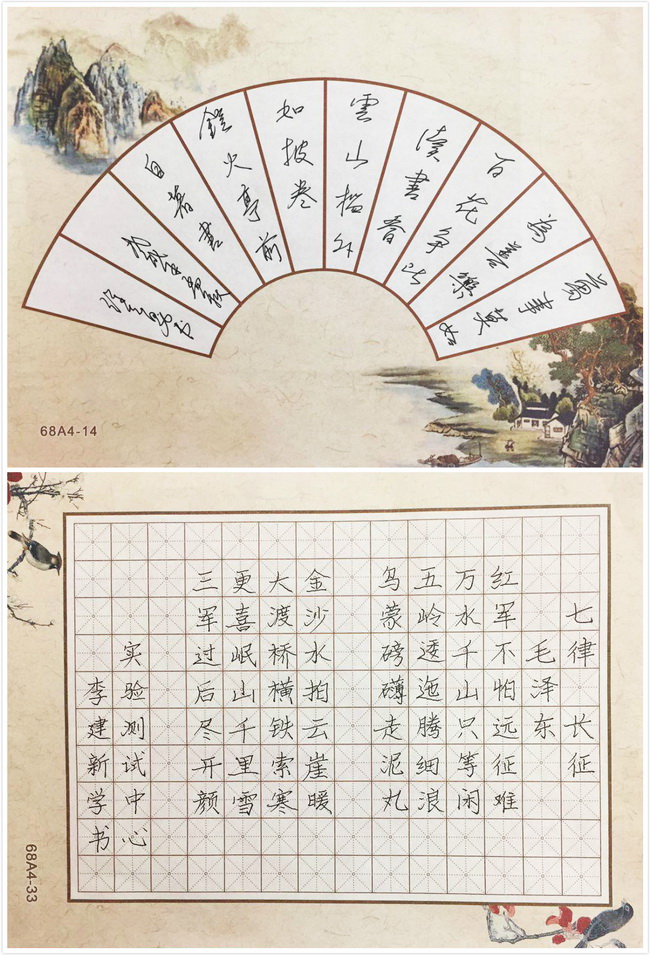 萬事莫如
為善樂
百花争比
讀書香
雲山檻外
如披卷
鐙火亭前
自著書
68A4-14
七律 长征
毛泽东
红军不怕远征难
万水千山只等闲
五岭逶迤腾细浪
乌蒙磅礴走泥丸
金沙水拍云崖暖
大渡桥横铁索寒
更喜岷山千里雪
三军过后尽开颜
实验测试中心
李建新学书
68A4-33